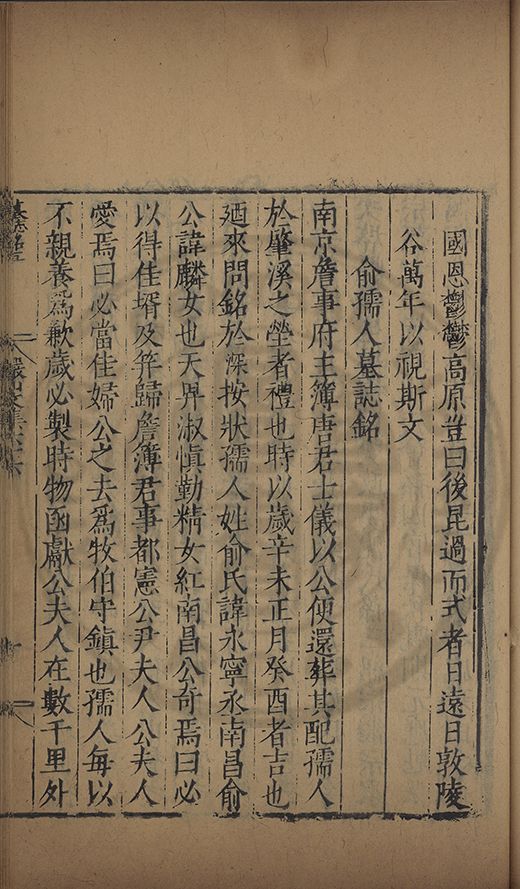 國恩鬱鬱高原豈曰後昆過而式者日遠日敦陵
谷萬年以視斯文
俞孺人墓誌銘
南京詹事府主簿唐君士儀以公使還葬其配孺人
於肇溪之塋者禮也時以歲辛未正月癸酉者吉也
廼來問銘於深按狀孺人姓俞氏諱永寧丞南昌俞
公諱麟女也天畀淑愼勤精女紅南昌公奇焉曰必
以得佳壻及筓歸詹簿君事都憲公尹夫人公夫人
愛焉曰必當佳婦公之去爲牧伯守鎮也孺人每以
不親養爲歉歲必製時物函獻公夫人在數千里外